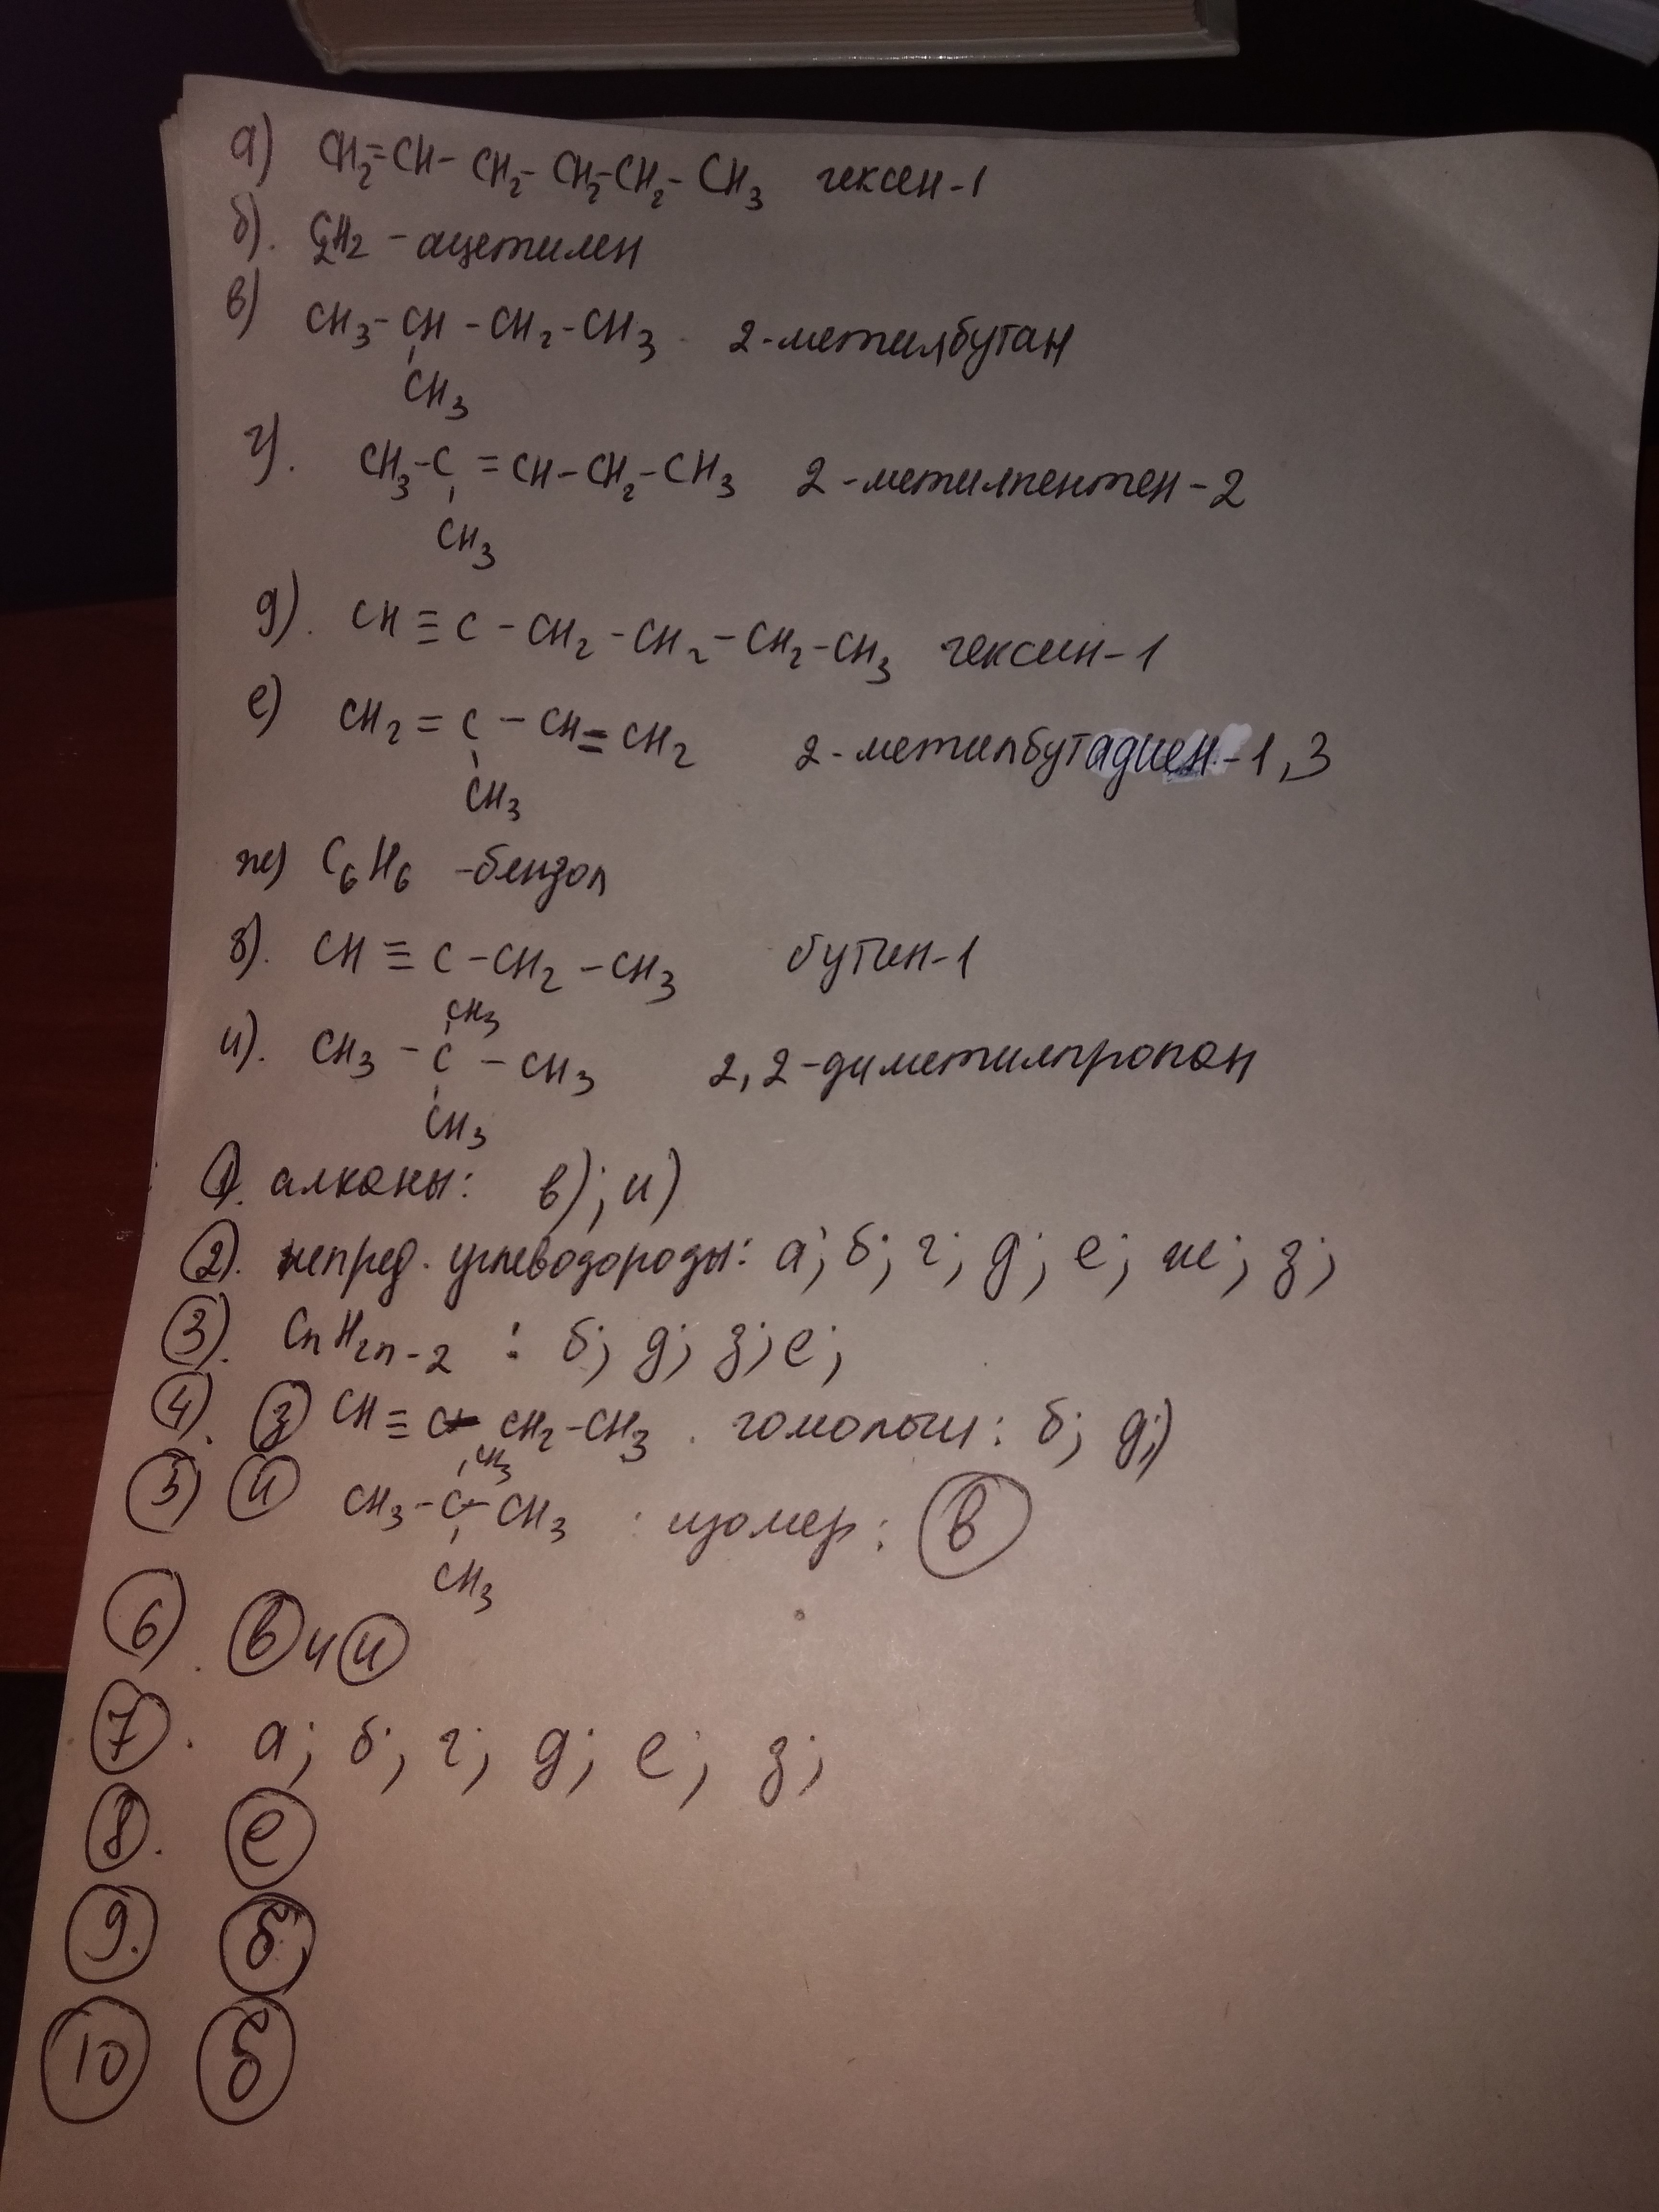 а) CH₂=CH-CH₂-CH₂-CH₂-CH₃ гексен-1
б). C₂H₂ - ацетилен
в) CH₃-CH-CH₂-CH₃ 2-метилбутан
CH₃
г). CH₃-C=CH-CH₂-CH₃ 2-метилпентен-2
CH₃
д). CH≡C-CH₂-CH₂-CH₂-CH₃ гексин-1
е) CH₂=C-CH=CH₂ 2-метилбутадиен-1,3
CH₃
ж) C₆H₆ -бензол
з). CH≡C-CH₂-CH₃ бутин-1
CH₃
и). CH₃-C-CH₃ 2,2-диметилпропан
CH₃
1. алканы: в); и)
2). непред. углеводороды: а; б; г; д; е; ж; з;
3). CnH2n-2 : б; д; з; е;
4). з CH≡C-CH₂-CH₃. гомологи: б; д;)
CH₃
5) и CH₃-C-CH₃ : изомер: в
CH₃
6). в и и
7). а; б; г; д; е; з;
8. е
9. б
10 б